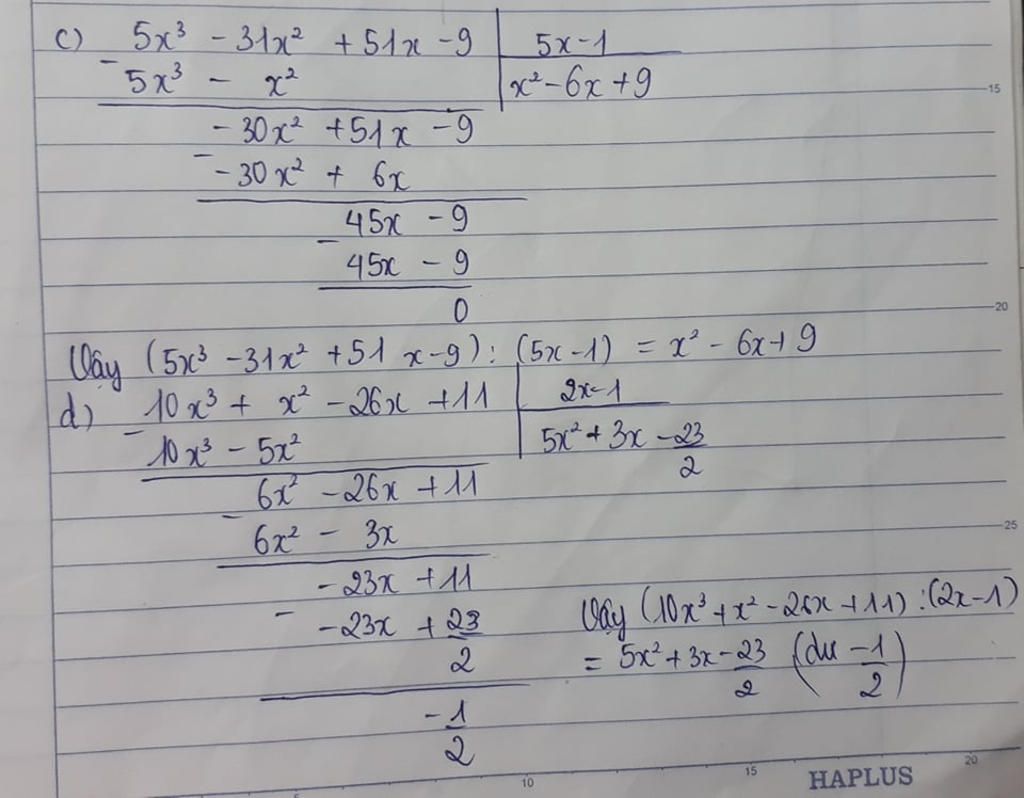 c) 5x³ - 31x² + 51x - 9 | 5x - 1
- 5x³ - x² | x² - 6x + 9
- 30x² + 51x - 9
- - 30x² + 6x
45x - 9
- 45x - 9
0
Vậy (5x³ - 31x² + 51x - 9) : (5x - 1) = x² - 6x + 9
d) 10x³ + x² - 26x + 11 | 2x - 1
- 10x³ - 5x² | 5x² + 3x - 23/2
6x² - 26x + 11
- 6x² - 3x
- 23x + 11
- - 23x + 23/2
- 1/2
Vậy (10x³ + x² - 26x + 11) : (2x - 1)
= 5x² + 3x - 23/2 (dư -1/2)
15
20
25
10
15
20
HAPLUS